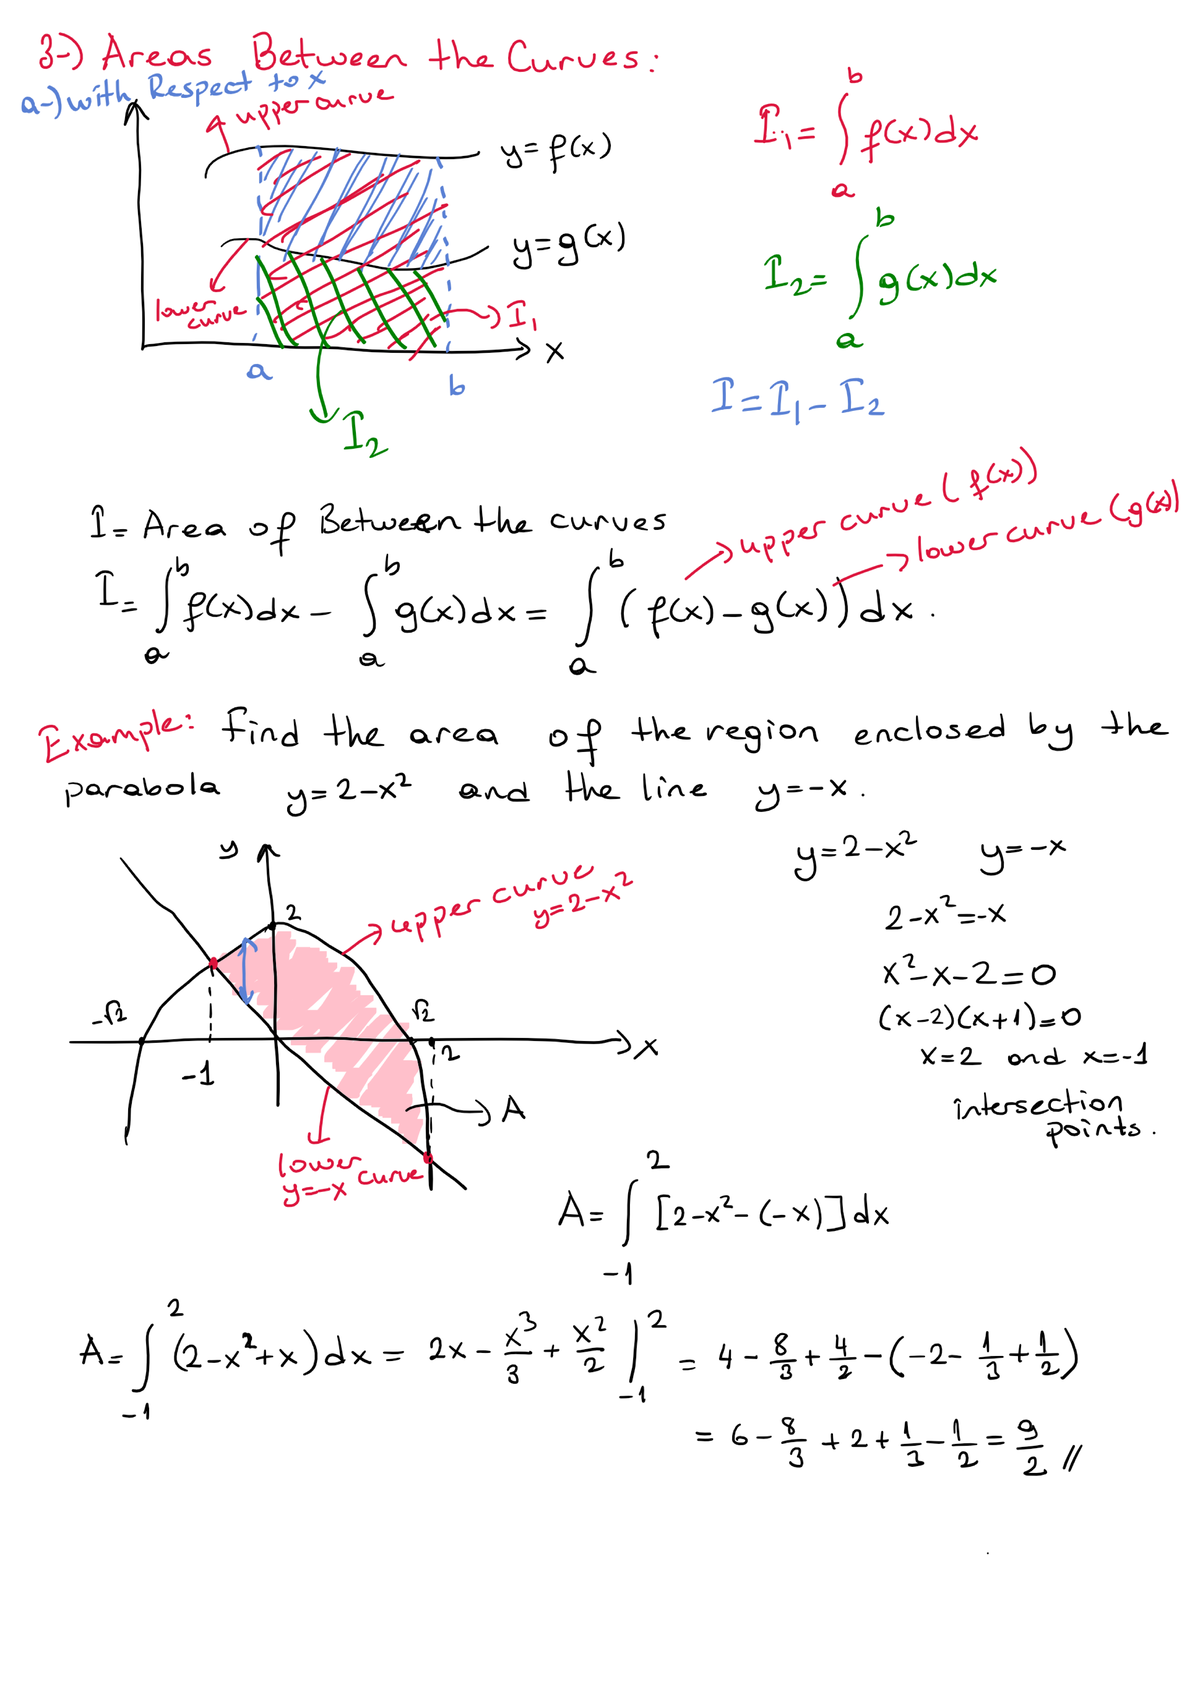 3-) Areas Between the Curves:
a-) with Respect to x
upper curve
y=f(x)
y=g(x)
lower curve
I₁
x
a
b
I₂
I₁ = ∫_a^b f(x)dx
I₂ = ∫_a^b g(x)dx
I = I₁ - I₂
I = Area of Between the curves
upper curve (f(x))
lower curve (g(x))
I = ∫_a^b f(x)dx - ∫_a^b g(x)dx = ∫_a^b (f(x)-g(x))dx.
Example: Find the area of the region enclosed by the
parabola y=2-x² and the line y=-x.
y
2
upper curve
y=2-x²
-√2
√2
-1
2
x
A
lower curve
y=-x
y=2-x² y=-x
2-x²=-x
x²-x-2=0
(x-2)(x+1)=0
x=2 and x=-1
intersection
points.
A = ∫_{-1}^2 [2-x²-(-x)]dx
A = ∫_{-1}^2 (2-x²+x)dx = 2x - x³/3 + x²/2 |_{-1}^2 = 4 - 8/3 + 4/2 - (-2 - 1/3 + 1/2)
= 6 - 8/3 + 2 + 1/3 - 1/2 = 9/2 //